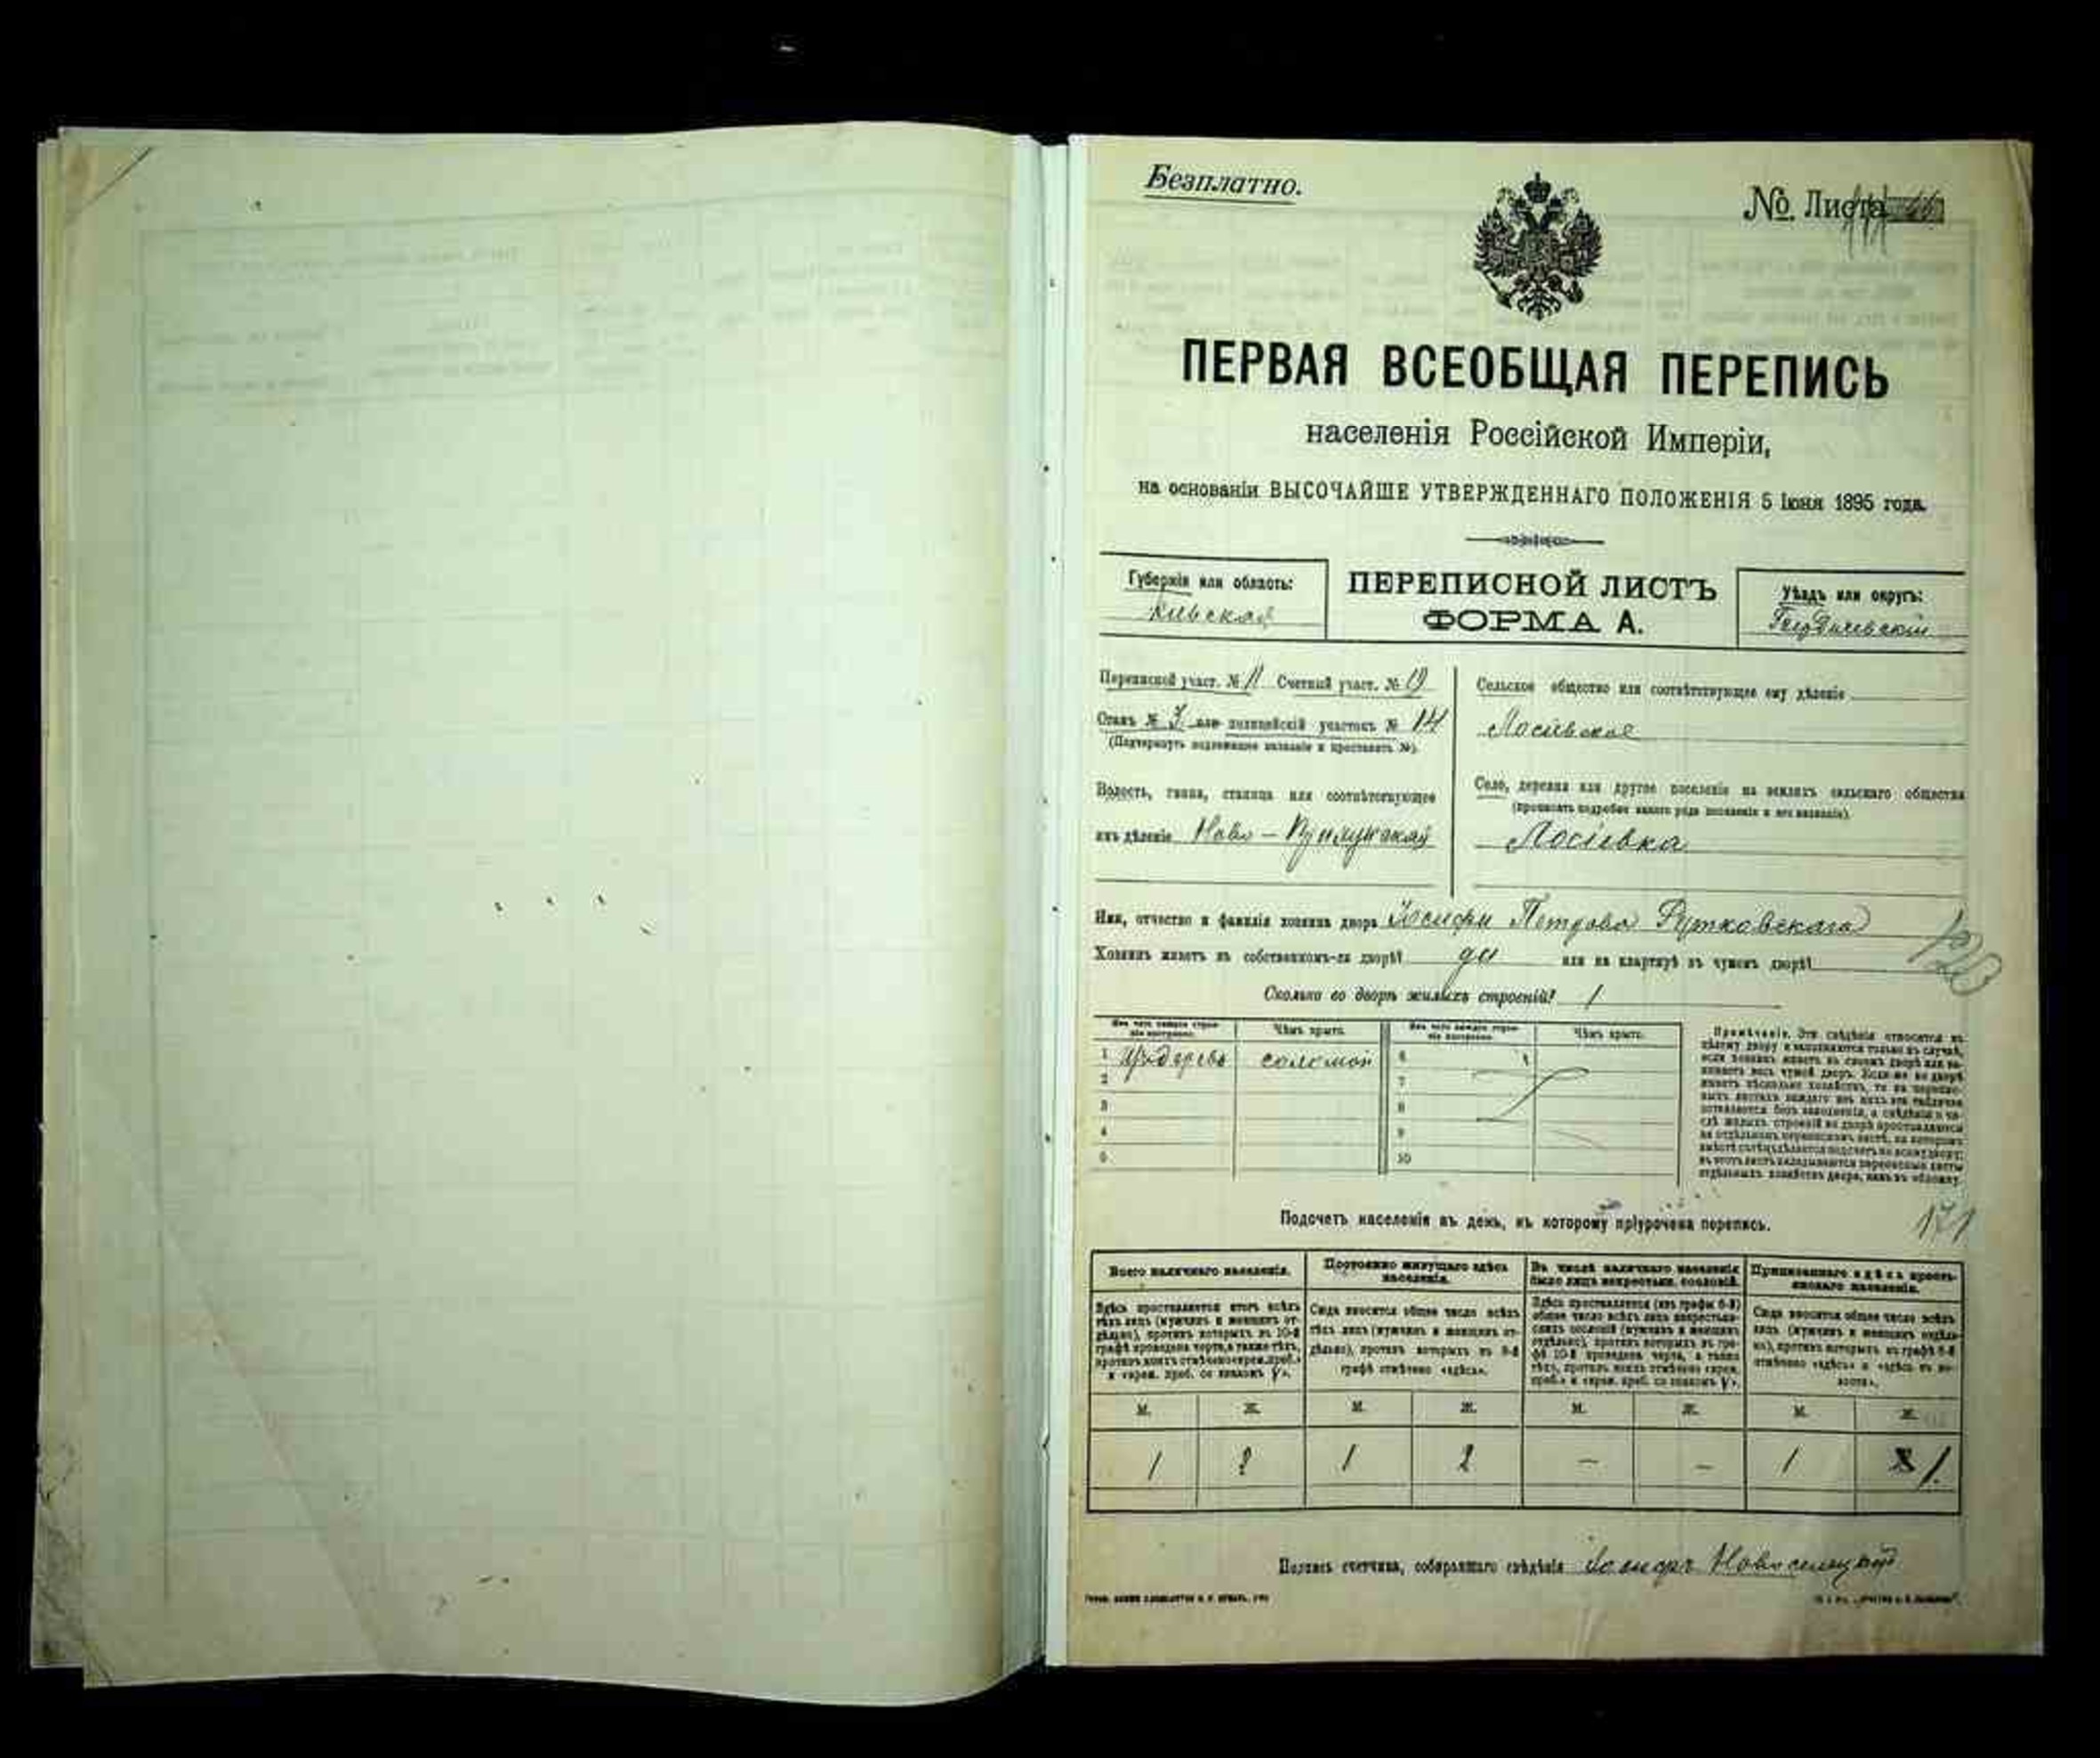 Безплатно.
№ Листа
ПЕРВАЯ ВСЕОБЩАЯ ПЕРЕПИСЬ
населенія Россійской Имперіи,
на основаніи ВЫСОЧАЙШЕ УТВЕРЖДЕННАГО ПОЛОЖЕНІЯ 5 Іюня 1895 года.
Губернія или область:
Кіевская
ПЕРЕПИСНОЙ ЛИСТЪ
ФОРМА А.
Уѣздъ или округъ:
Бердичевскій
Переписной участ. № 11 Счетный участ. № 19
Станъ № 3 или полицейскій участокъ № 14
(Подчеркнуть надлежащее названіе и проставить №).
Волость, гмина, станица или соотвѣтствующее
имъ дѣленіе Ново-Прилукской
Сельское общество или соотвѣтствующее ему дѣленіе
Лосіевское
Село, деревня или другое поселеніе на земляхъ сельскаго общества
(прописать подробно какого рода поселеніе и его названіе).
Лосіевка
Имя, отчество и фамилія хозяина двора Іосифа Петрова Рутковскаго
Хозяинъ живетъ въ собственномъ-ли дворѣ? да или на квартирѣ въ чужомъ дворѣ?
120
Сколько во дворѣ жилыхъ строеній? 1
Изъ чего каждое строеніе построено.
Чѣмъ крыто.
Изъ чего каждое строеніе построено.
Чѣмъ крыто.
1 соломой 6
2 7
3 8
4 9
5 10
Примѣчаніе. Эти свѣдѣнія относятся къ
цѣлому двору и заполняются только въ случаѣ,
если хозяинъ живетъ въ своемъ дворѣ или за-
нимаетъ весь чужой дворъ. Если-же во дворѣ
имѣетъ нѣсколько хозяйствъ, то на перепис-
ныхъ листахъ каждаго изъ нихъ эта табличка
оставляется безъ заполненія, а свѣдѣнія о чи-
слѣ жилыхъ строеній во дворѣ проставляются
на отдѣльномъ переписномъ листѣ, на которомъ
вмѣстѣ съ тѣмъ дѣлается подсчетъ по всему двору;
въ этотъ листъ вкладываются переписные листы
отдѣльныхъ хозяйствъ двора, какъ въ обложку.
Подсчетъ населенія въ день, къ которому пріурочена перепись.
171
Всего наличнаго населенія.
Здѣсь проставляется итогъ всѣхъ
тѣхъ лицъ (мужчинъ и женщинъ от-
дѣльно), противъ которыхъ въ 10-й
графѣ проведена черта, а также тѣхъ,
противъ коихъ отмѣчено «врем. преб.»
и «врем. преб. со знакомъ V».
Постоянно живущаго здѣсь
населенія.
Сюда вносится общее число всѣхъ
тѣхъ лицъ (мужчинъ и женщинъ от-
дѣльно), противъ которыхъ въ 9-й
графѣ отмѣчено «здѣсь».
Въ числѣ наличнаго населенія
было лицъ некрестьян. сословій.
Здѣсь проставляется (изъ графы 6-й)
общее число всѣхъ лицъ некрестьян-
скихъ сословій (мужчинъ и женщинъ
отдѣльно), противъ которыхъ въ гра-
фѣ 10-й проведена черта, а также
тѣхъ, противъ коихъ отмѣчено «врем.
преб.» и «врем. преб. со знакомъ V».
Приписаннаго здѣсь кресть-
янскаго населенія.
Сюда вносится общее число всѣхъ
лицъ (мужчинъ и женщинъ отдѣль-
но), противъ которыхъ въ графѣ 8-й
отмѣчено «здѣсь» и «здѣсь въ во-
лости».
М. Ж. М. Ж. М. Ж. М. Ж.
1 2 1 2 – – 1 1.
Подпись счетчика, собиравшаго свѣдѣнія Іосифъ Новоселецкій